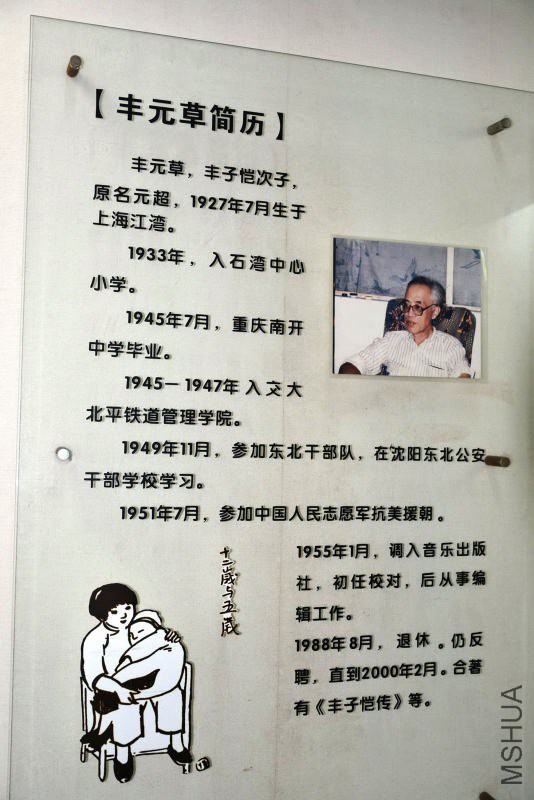 【丰元草简历】
丰元草，丰子恺次子，
原名元超，1927年7月生于
上海江湾。
1933年，入石湾中心
小学。
1945年7月，重庆南开
中学毕业。
1945—1947年 入交大
北平铁道管理学院。
1949年11月，参加东北干部队，在沈阳东北公安
干部学校学习。
1951年7月，参加中国人民志愿军抗美援朝。
十二歲与五歲
1955年1月，调入音乐出版
社，初任校对，后从事编
辑工作。
1988年8月，退休。仍反
聘，直到2000年2月。合著
有《丰子恺传》等。
MSHUA